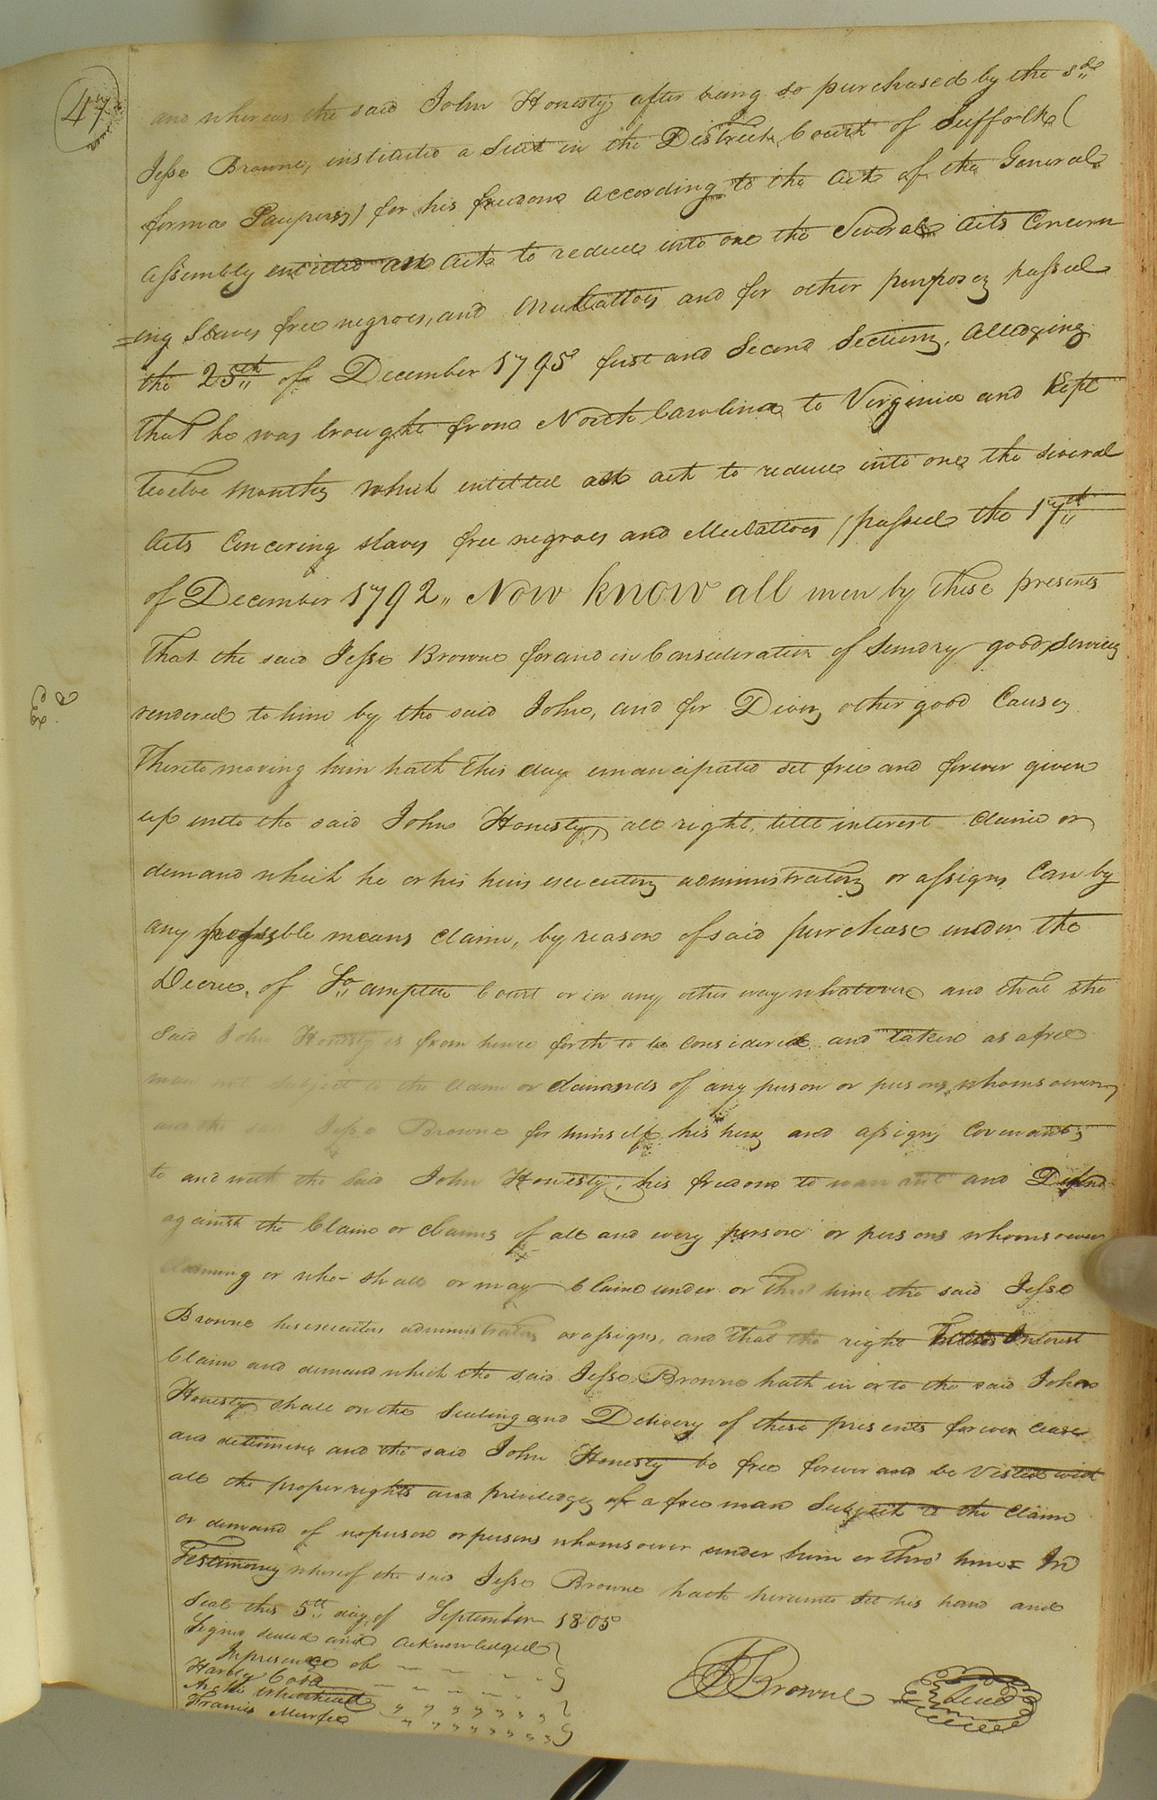 47
and whereas the said John Honesty after being so purchased by the sd.
Jesse Browne, instituted a Suit in the District Court of Suffolk (
forma Pauperis) for his freedom according to the Act of the General
Assembly entitled an Act to reduce into one the Several Acts Concern
=ing Slaves free negroes, and Mulattoes and for other purposes passed
the 25th of December 1795 first and Second Sections, Alledging
that he was brought from North Carolina to Virginia and kept
twelve Months which entitled an act to reduce into one, the several
Acts Concering slaves free negroes and Mulattoes (passed the 17th
of December 1792,, Now know all men by these presents
That the said Jesse Browne for and in Consideration of Sundry good Services
rendered to him by the said John, and for Divers other good Causes
Thereto moving him hath this day emancipated set free and forever given
up unto the said John Honesty, all right, title interest Claim or
demand which he or his heirs executors administrators or assigns Can by
any possible means claim, by reason of said purchase under the
Decree, of So,,ampton Court or in any other way whatever and that the
Said John Honesty is from hence forth to be Considered and taken as a free
man not Subject to the claim or demands of any person or persons whomsoever,
and the said Jesse Browne for himself his heirs and assigns, Covenants
to and with the Said John Honesty, his freedom to warrant and Defend
against the Claim or claims of all and every person or persons whomsoever
Claiming or who shall or may Claim under or Thro' him the said Jesse
Browne his executors administrators or assigns, and that the right Title Interest
Claim and demand which the said Jesse Browne hath in or to the said John
Honesty shall on the Sealing and Delivery of these presents forever cease
and determine and the said John Honesty be free forever and be Vested with
all the proper rights and priviledges of a free man Subject to the Claim
or demand of no person or persons whomsoever under him or thro' him = In
Testimony whereof the said Jesse Browne hath hereunto Set his hand and
Seal this 5th day of September 1805
Signed sealed and acknowledged
In presence of
Hardy Cobb
Whitehead
Francis Murfee
J Browne Seal